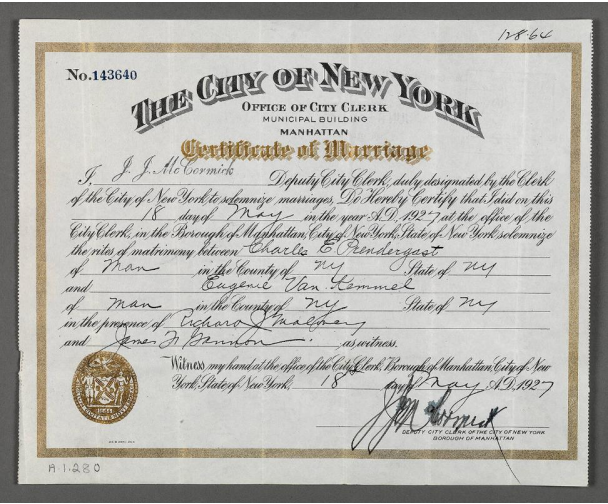 128.64
No.143640
THE CITY OF NEW YORK
OFFICE OF CITY CLERK
MUNICIPAL BUILDING
MANHATTAN
Certificate of Marriage
I, J. J. McCormick Deputy City Clerk, duly designated by the Clerk
of the City of New York to solemnize marriages, Do Hereby Certify that I did on this
18 day of May in the year A.D. 1927 at the office of the
City Clerk, in the Borough of Manhattan, City of New York, State of New York, solemnize
the rites of matrimony between Charles E Prendergast
of Man in the County of NY State of NY
and Eugenie Van Kemmel
of Man in the County of NY State of NY
in the presence of Richard J Maloney
and James F as witness.
Witness my hand at the office of the City Clerk, Borough of Manhattan, City of New
York, State of New York, 18 day of May A.D. 1927
J J McCormick
DEPUTY CITY CLERK OF THE CITY OF NEW YORK
BOROUGH OF MANHATTAN
A.1.280